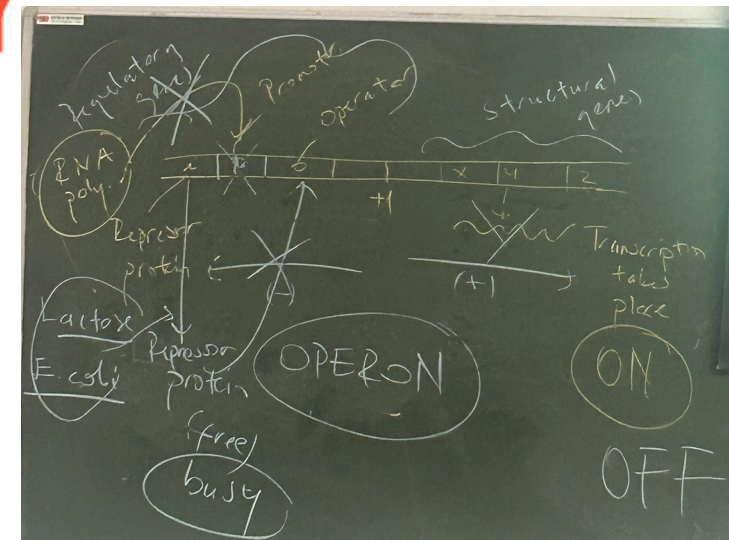 Regulatory
gene
Promotr.
Operator
structural
genes
RNA
poly.
i
P
o
x
y
z
+1
Repressor
protein
(-)
(+)
Transcription
takes
place
Lactose
E. coli
Repressor
protein
(free)
busy
OPERON
ON
OFF